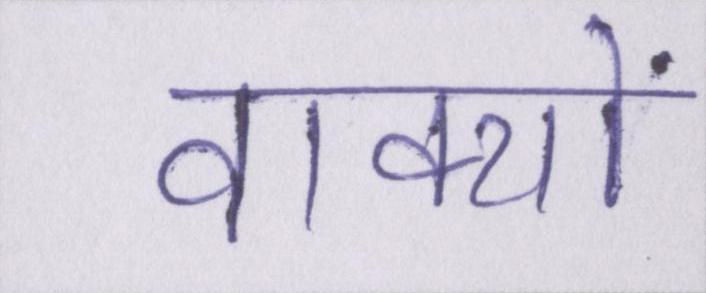 वाक्यों